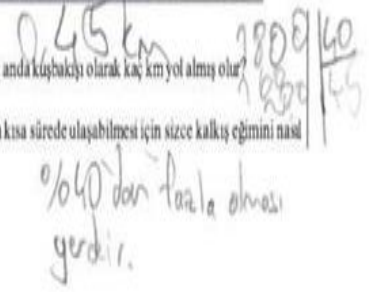 0,45 km
1800 40
anda kuşbakışı olarak kaç km yol almış olur?
1800 45
kısa sürede ulaşabilmesi için sizce kalkış eğimini nasıl
%40'dan fazla olması